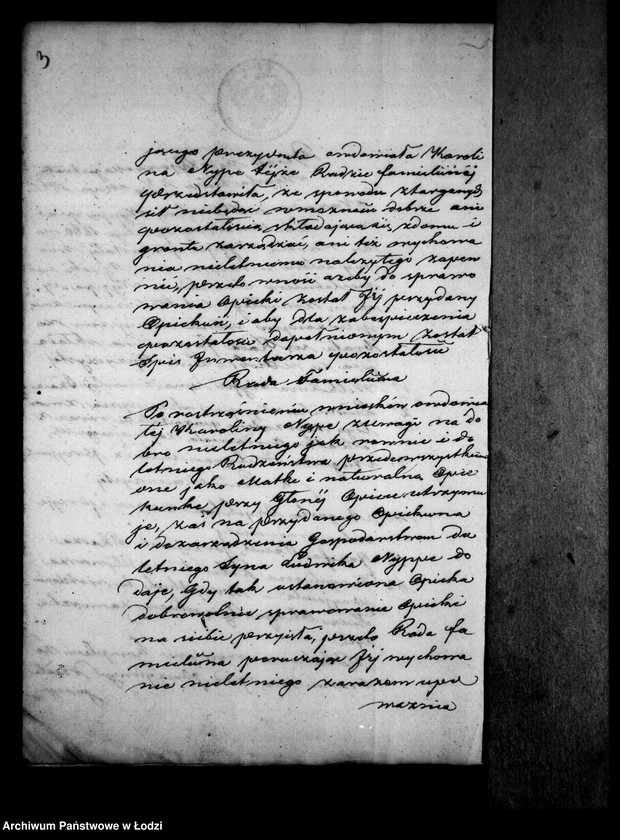 3
jącego prezydenta owdowiała Karoli
na Nyppe tejże Radzie familijnéj
przedstawiła, że sposobu ztarganych
sił niebędąc wmożności dobrze ani
pozostałością, składającą się, zdomu i
gruntu zarządzać, ani też wychowa
nia nieletniemu należytego zapew
nić, przeto wnosi ażeby do sprawo
wania Opieki został Jéj przydany
Opiekun, i aby dla zabezpieczenia
pozostałości dopełnionym został
Spis Inwentarza pozostałości
Rada Familijna
Po roztrząśnieniu wniosków owdowia
łéj Karoliny Nyppe zuwagi na do
bro nieletniego jak równie i do
letniego Rodzeństwa, przedewszystkiem
one jako Matkę i naturalną Opie
kunkę przy Głónéj Opiece utrzymu
je, zaś na przydanego Opiekuna
i dozarządzenia Gospodarstwem do
letniego Syna Ludwika Nyppe do
daje, Gdy tak ustanowiona Opieka
dobrowolnie sprawowanie Opieki
na siebie przyjęła, przeto Rada fa
milijna poruczając Jéj wychowa
nie nieletniego zarazem upo
ważnia
Archiwum Państwowe w Łodzi